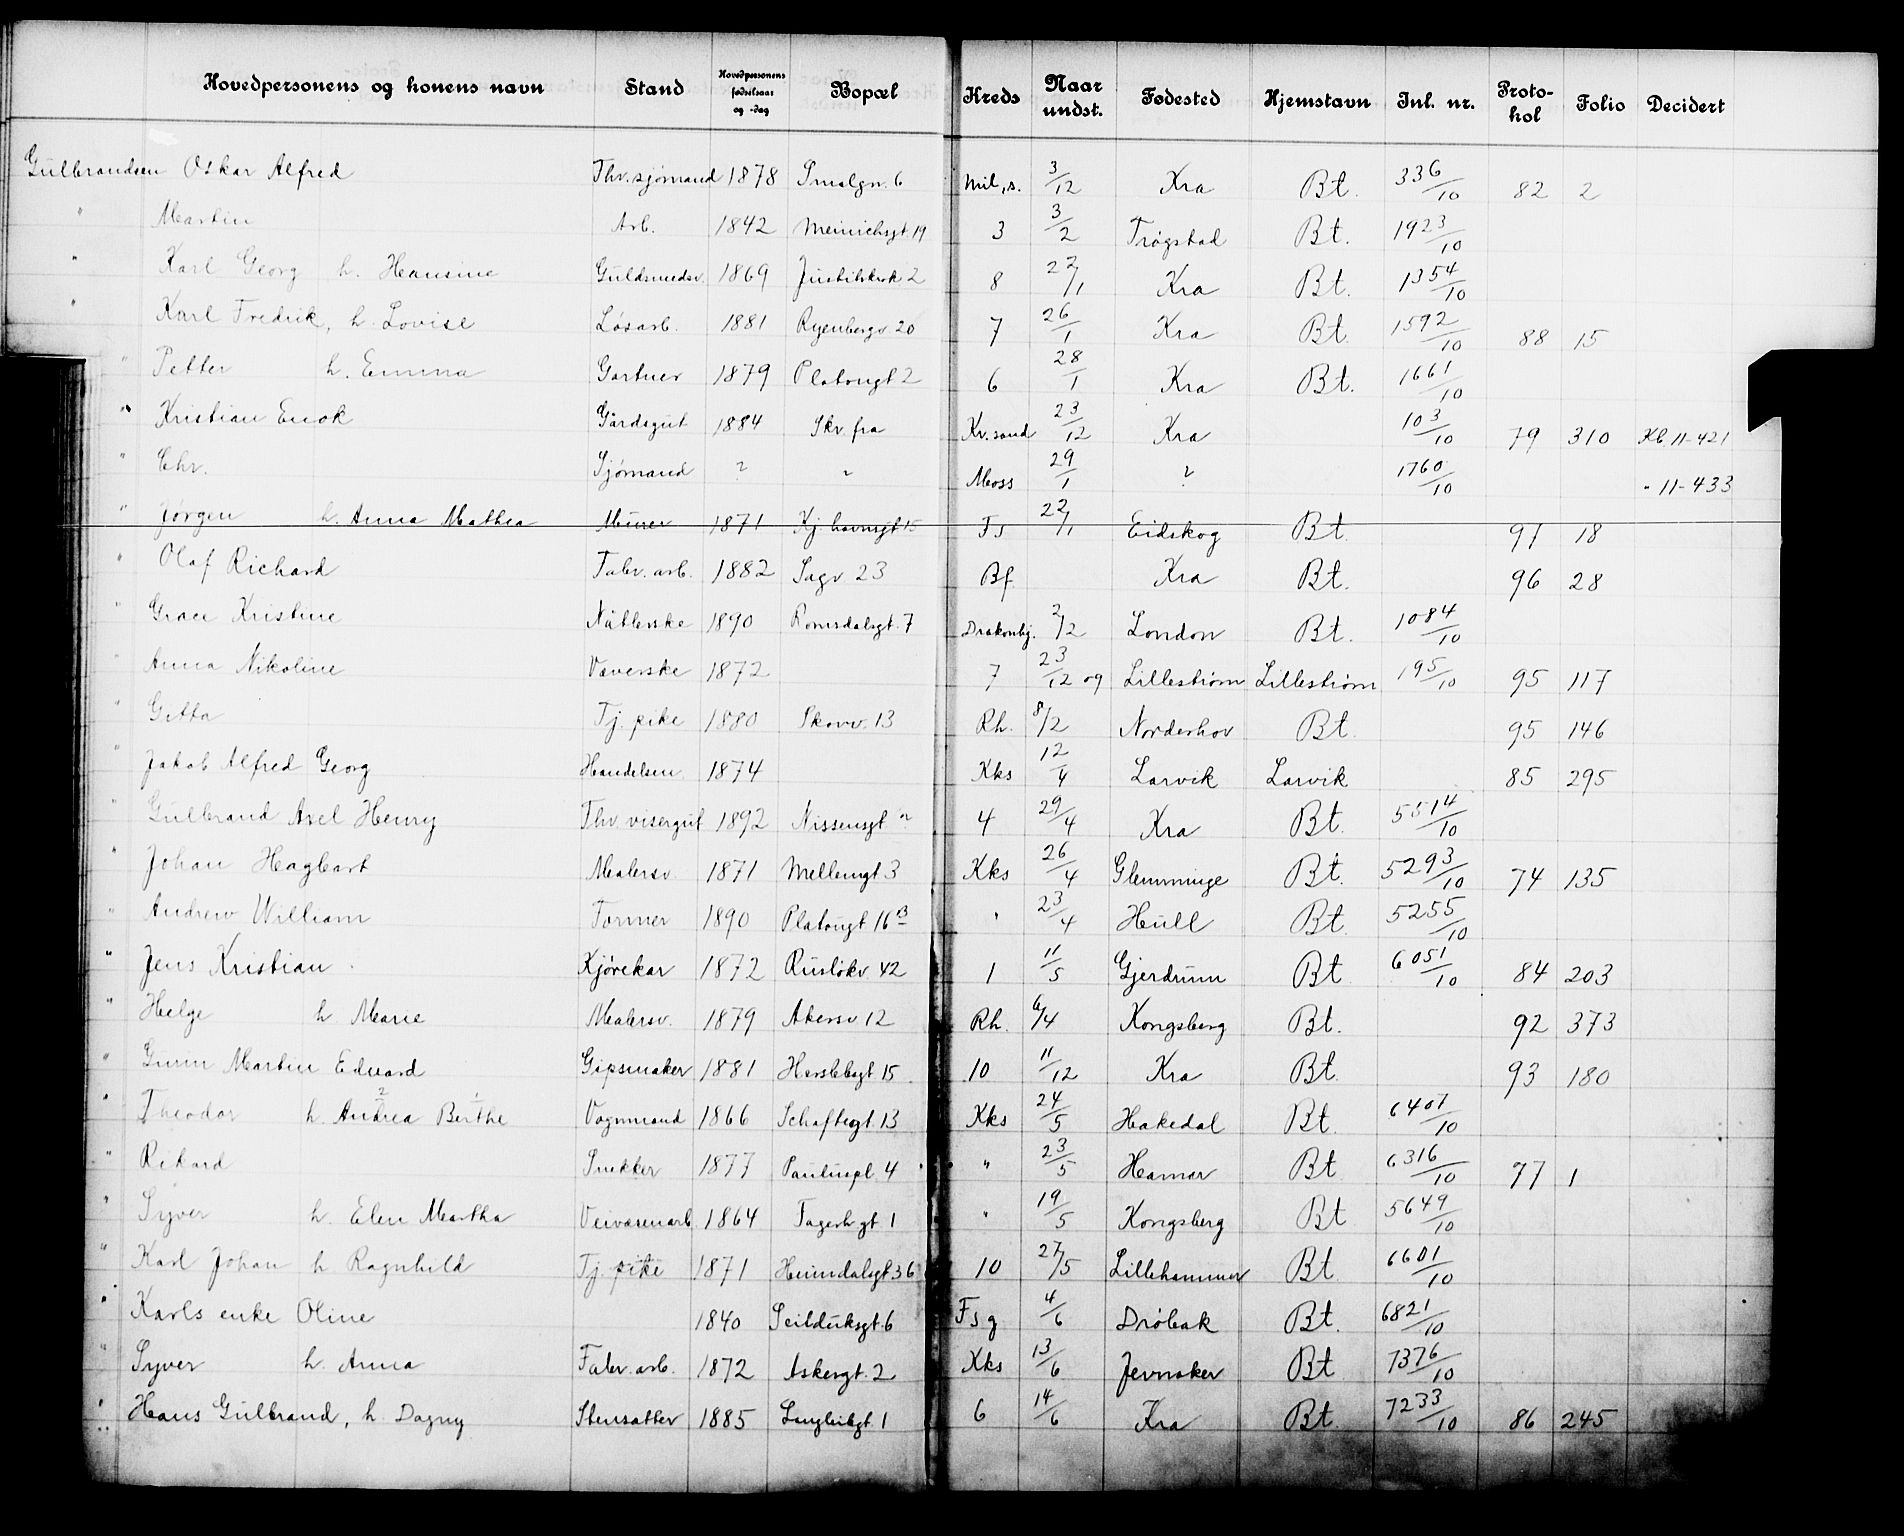 Hovedpersonens og konens navn Stand Hovedpersonens fødselsaar og -dag Bopæl Kreds Naar undst. Fødested Hjemstavn Inl. nr. Protokol Folio Decidert
Gulbrandsen Oskar Alfred Fhv. sjømand 1878 Smalgn. 6 Mil. s. 3/12 Kra Bt. 336/10 82 2
" Martin Arb. 1842 Meinichsgt. 19 3 3/2 Trøgstad Bt. 1923/10
" Karl Georg h. Hansine Guldsmedsv. 1869 Justitskrok 2 8 22/1 Kra Bt. 1354/10
" Karl Fredrik, h. Lovise Løsarb. 1881 Ryenbergv. 20 7 26/1 Kra Bt. 1592/10 88 15
" Petter h. Emma Gartner 1879 Platousgt 2 6 28/1 Kra Bt. 1661/10
" Kristian Enok Gårdsgut 1884 Skv. fra Kr. sand 23/12 Kra 103/10 79 310 Kb 11-421
" Chr. Sjømand ? " Moss 29/1 ? 1760/10 " 11-433
" Jørgen h. Anna Mathea Murer 1871 Kj. havnsgt 15 Fs 22/1 Eidskog Bt. 97 18
" Olaf Richard Fabr. arb. 1882 Sagv 23 Bf. Kra Bt. 96 28
" Grace Kristine Nåtlerske 1890 Romsdalsgt. 7 2/12 London Bt. 1084/10
" Anna Nikoline Væverske 1872 7 23/12 09 Lillestrøm Lillestrøm 195/10 95 117
" Gitta Tj. pike 1880 Skovv. 13 Rh. 8/2 Norderhov Bt. 95 146
" Jakob Alfred Georg Handelsm. 1874 Kks 12/4 Larvik Larvik 85 295
" Gulbrand Axel Henry Fhv. visergut 1892 Nissensgt ? 4 29/4 Kra Bt. 5514/10
" Johan Hagbart Malersv. 1871 Mellemgt 3 Kks 26/4 Glemminge Bt. 5293/10 74 135
" Andrew William Former 1890 Platougt 16 B " 23/4 Hull Bt. 5255/10
" Jens Kristian Kjørekar 1872 Rusløkv 42 1 11/5 Gjerdrum Bt 6051/10 84 203
" Helge h. Marie Malersv. 1879 Akersv 12 Rh. 6/4 Kongsberg Bt. 92 373
" Gunn Martin Edvard Gipsmaker 1881 Herslebsgt 15 10 11/12 Kra Bt. 93 180
" Theodor h. Andrea Berthe Vognmand 1866 Schaftegt. 13 Kks 24/5 Hakedal Bt. 6407/10
" Rikard Snekker 1877 Pauluspl. 4 " 23/5 Hamar Bt 6316/10 77 1
" Syver h. Elen Martha Veivæsenarb. 1864 Fagerh gt 1 " 19/5 Kongsberg Bt 5649/10
" Karl Johan h Ragnhild Tj. pike 1871 Heimdalsgt 36 10 27/5 Lillehammer Bt. 6601/10
" Karls enke Oline 1840 Seilduksgt. 6 Fsg 4/6 Drøbak Bt. 6821/10
" Syver h. Anna Fabr. arb. 1872 Askergt. 2 Kks 13/6 Jevnaker Bt 7376/10
" Hans Gulbrand, h. Dagny Stensætter 1885 Langleikgt. 1 6 14/6 Kra Bt. 7233/10 86 245